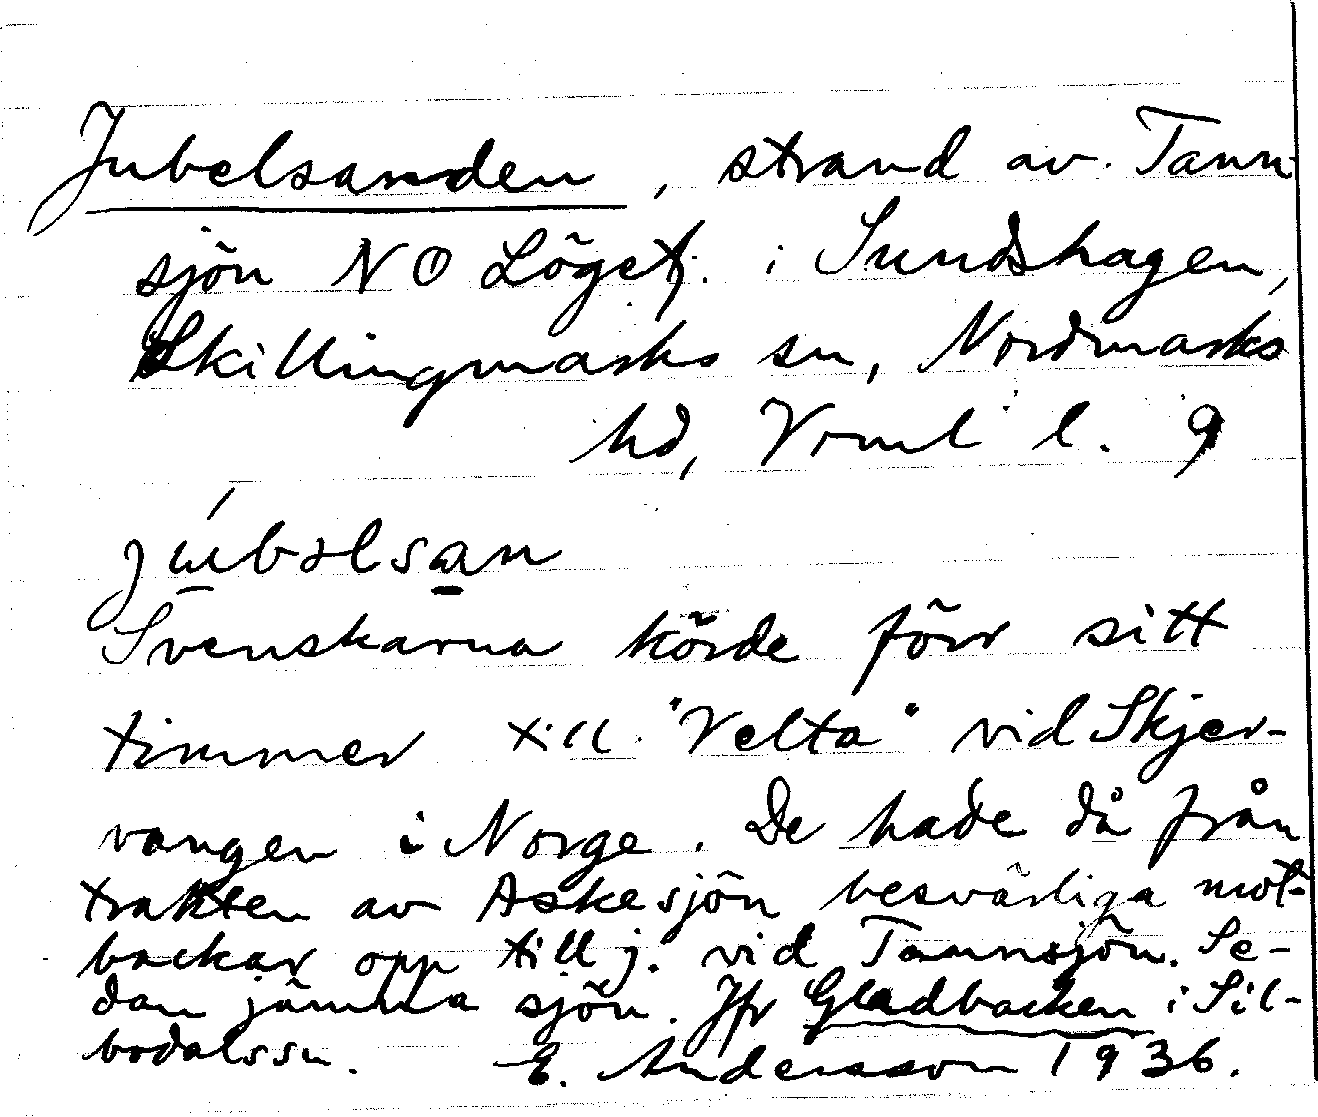 Jubelsanden, strand av Tann-
sjön NO Löget. i Sundshagen,
Skillingmarks sn, Nordmarks
hd, Vrml l. 9
júbəlsan
Svenskarna körde förr sitt
timmer till "Velta" vid Skjer-
vangen i Norge. De hade då från
trakten av Askesjön besvärliga mot-
backar opp till j. vid Tannsjön. Se-
dan jämna sjön. Jfr Gladbacken i Sil-
bodalssn. E. Andersson 1936.